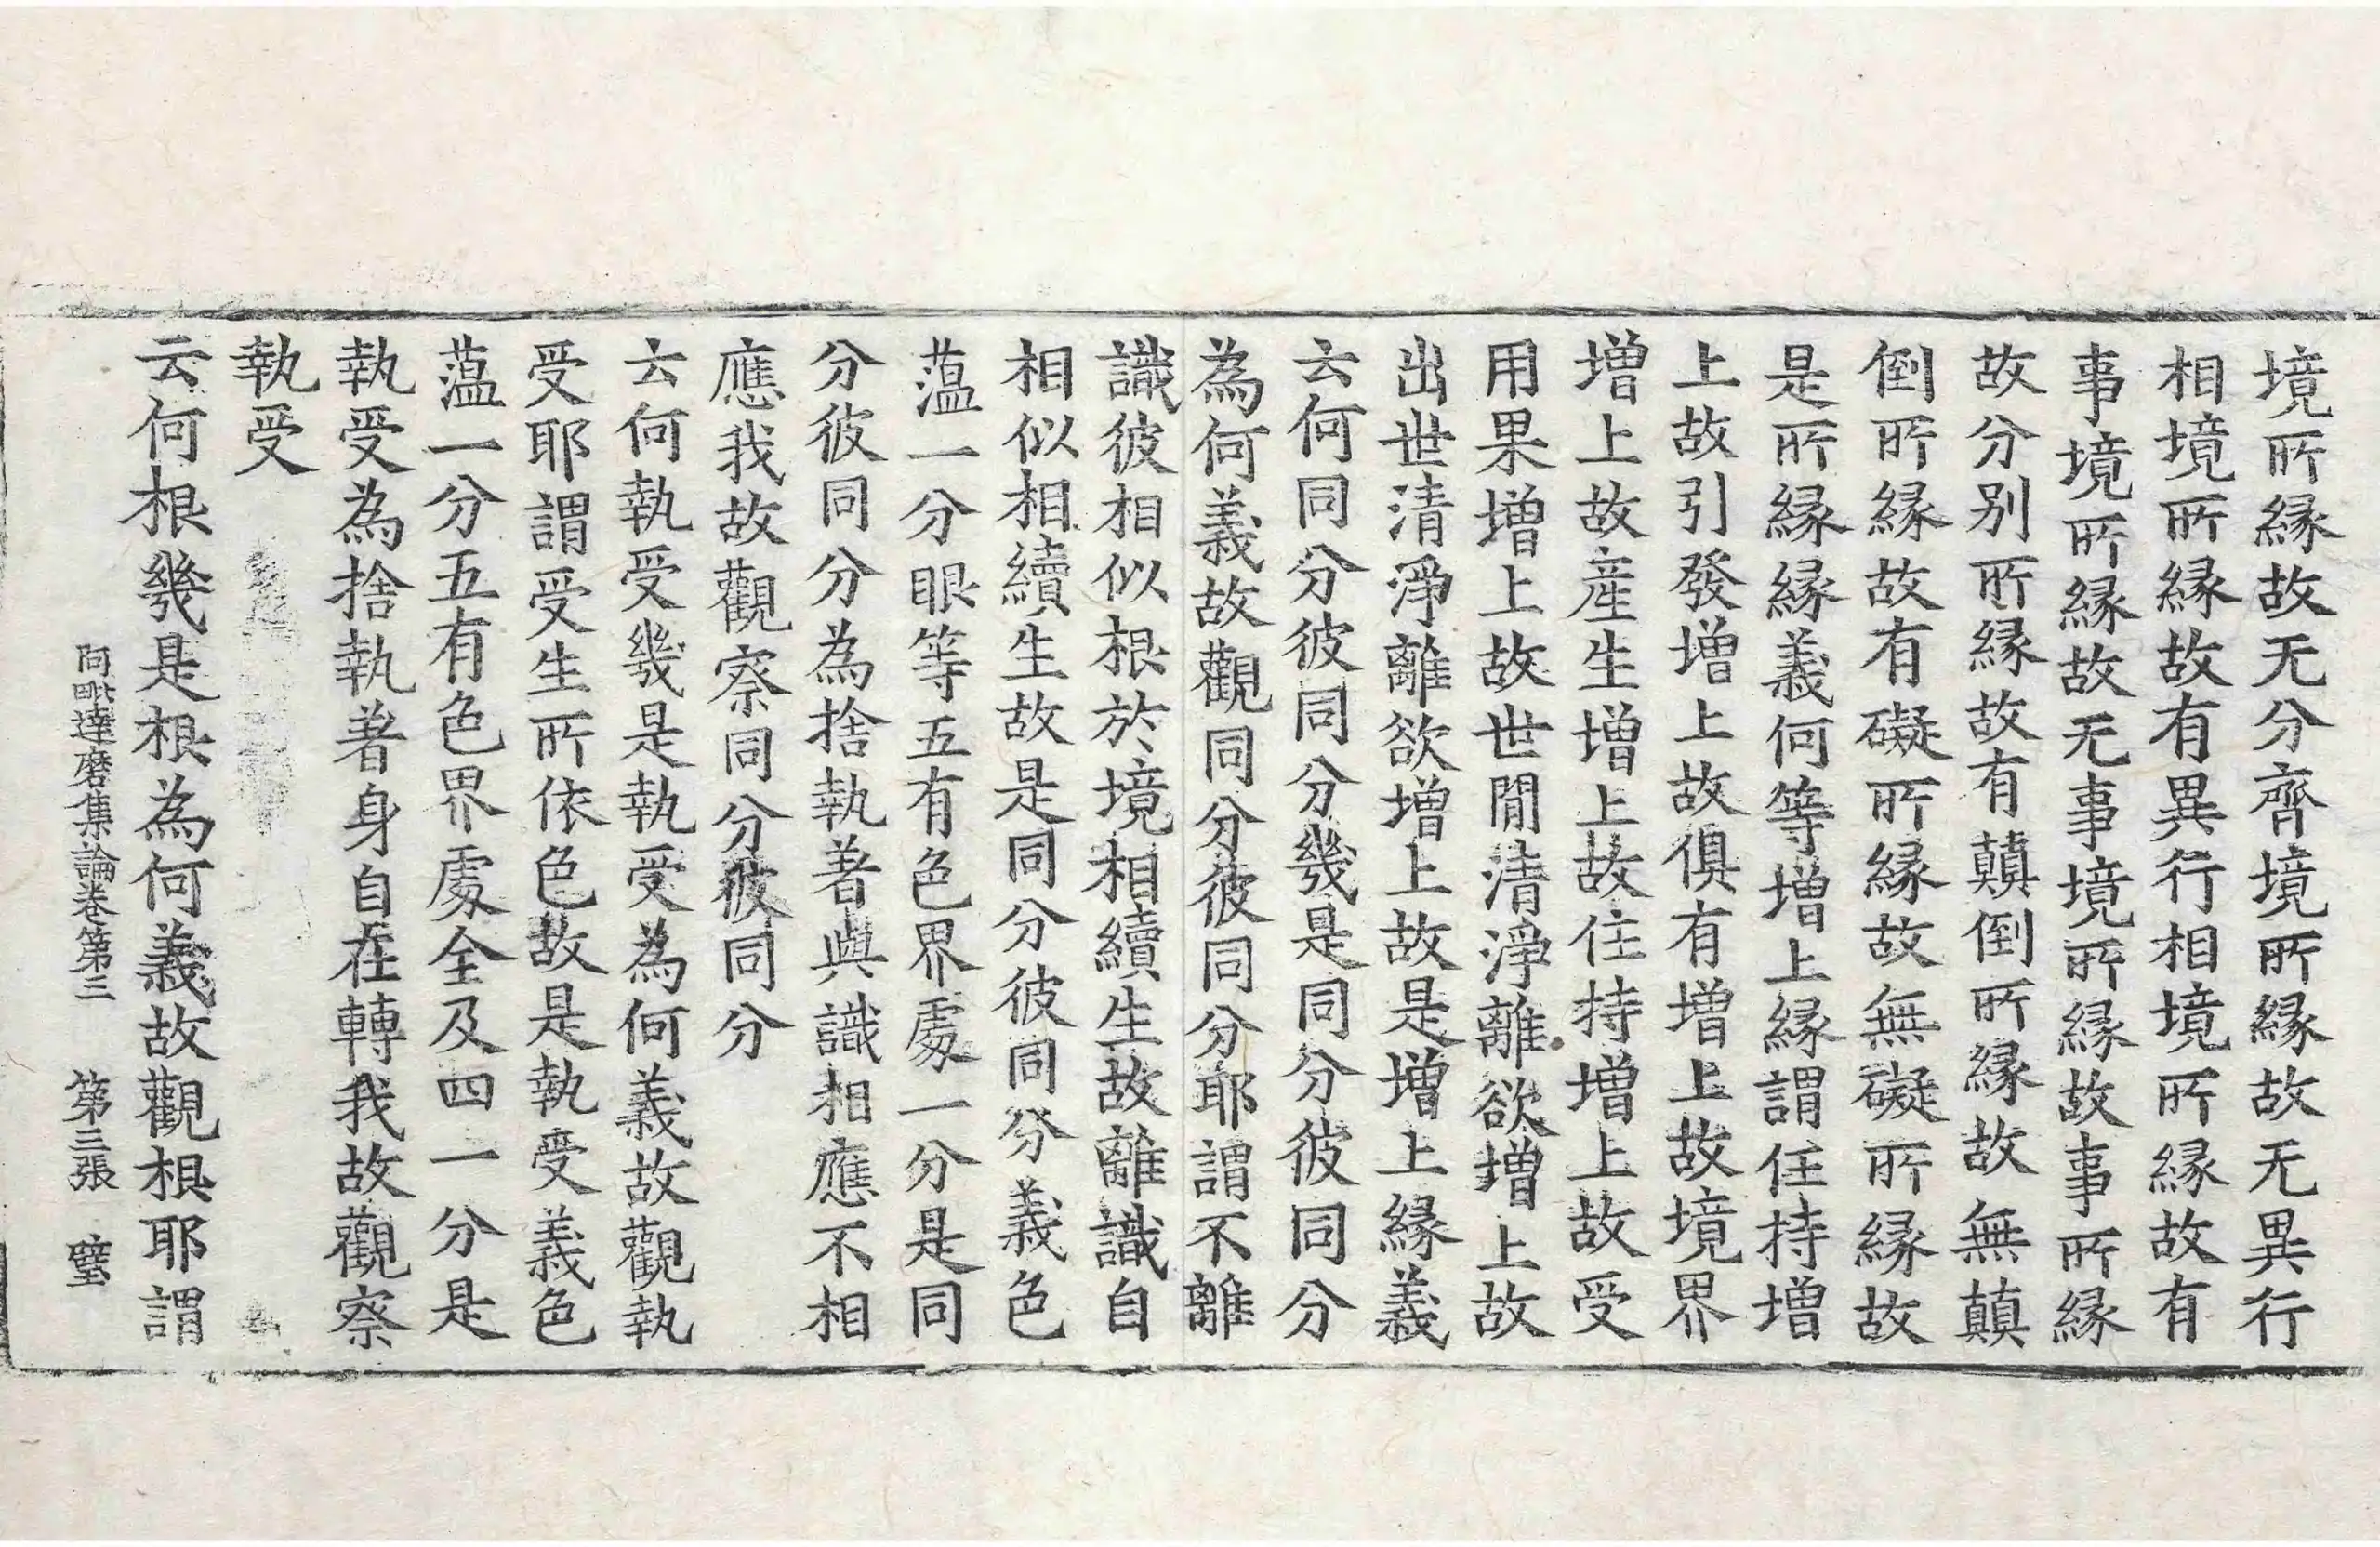 境所縁故无分齊境所縁故无異行
相境所縁故有異行相境所縁故有
事境所縁故无事境所縁故事所縁
故分别所縁故有顛倒所縁故無顛
倒所縁故有礙所縁故無礙所縁故
是所縁縁義何等增上縁謂任持增
上故引發增上故俱有增上故境界
增上故産生增上故住持增上故受
用果增上故世閒清淨離欲增上故
出世清淨離欲增上故是增上縁義
云何同分彼同分幾是同分彼同分
為何義故觀同分彼同分耶謂不離
識彼相似根於境相續生故離識自
相似相續生故是同分彼同分義色
蕰一分眼等五有色界處一分是同
分彼同分為捨執著與識相應不相
應我故觀察同分彼同分
云何執受幾是執受為何義故觀執
受耶謂受生所依色故是執受義色
蕰一分五有色界處全及四一分是
執受為捨執著身自在轉我故觀察
執受
云何根幾是根為何義故觀根耶謂
阿毗達磨集論卷第三 第三張 璧